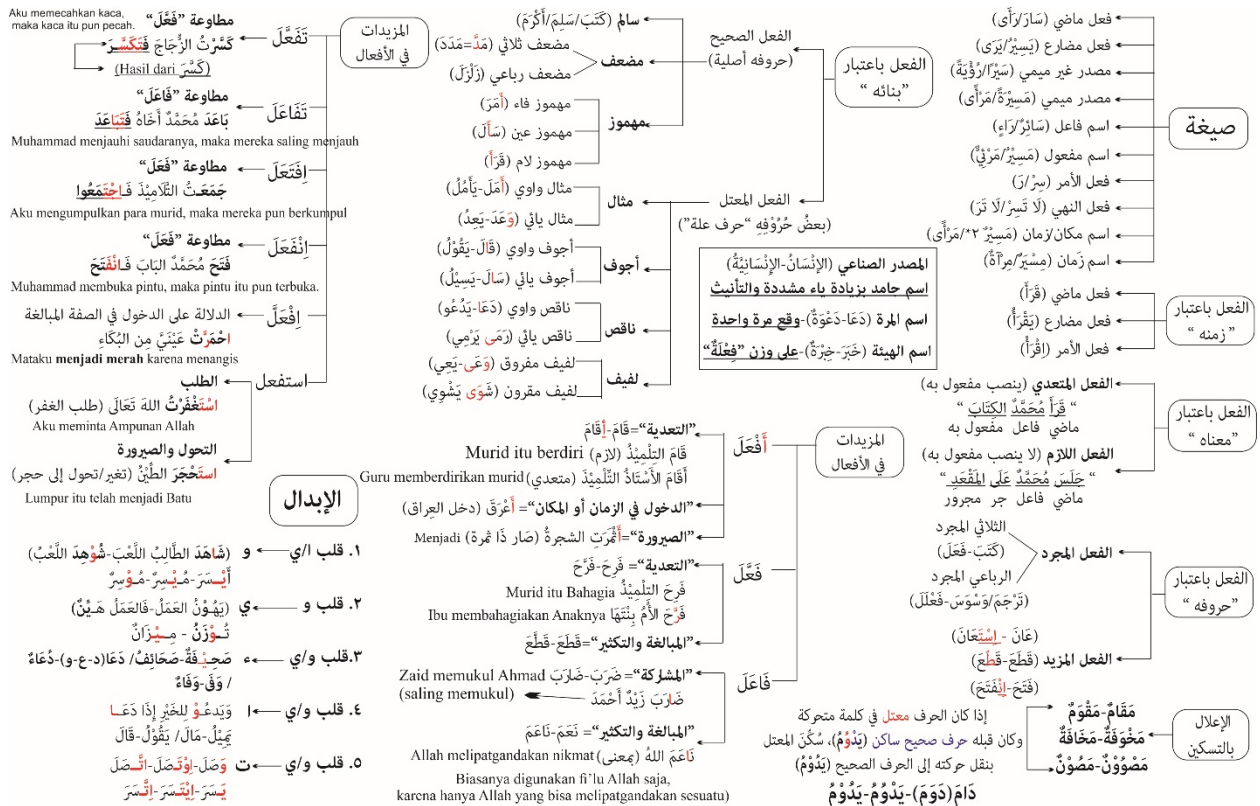 صيغة
فعل ماضي (سَارَ/رَأَى)
فعل مضارع (يَسِيْرُ/يَرَى)
مصدر غير ميمي (سَيْرًا/رُؤْيَةً)
مصدر ميمي (مَسِيْرَةً/مَرْأًى)
اسم فاعل (سَائِرٌ/رَاءٍ)
اسم مفعول (مَسِيْرٌ/مَرْئِيٌّ)
فعل الأمر (سِرْ/رَ)
فعل النهي (لَا تَسِرْ/لَا تَرَ)
اسم مكان/زمان (مَسِيْرٌ ٢*/مَرْأًى)
اسم زمان (مِسْيَرٌ/مِرْآةٌ)
الفعل باعتبار
"زمنه"
فعل ماضي (قَرَأَ)
فعل مضارع (يَقْرَأُ)
فعل الأمر (اِقْرَأْ)
الفعل باعتبار
"معناه"
الفعل المتعدي (ينصب مفعول به)
"قَرَأَ مُحَمَّدٌ الكِتَابَ"
ماضي فاعل مفعول به
الفعل اللازم (لا ينصب مفعول به)
"جَلَسَ مُحَمَّدٌ عَلَى المَقْعَدِ"
ماضي فاعل جر مجرور
الفعل باعتبار
"حروفه"
الفعل المجرد
الثلاثي المجرد
(كَتَبَ-فَعَلَ)
الرباعي المجرد
(تَرْجَمَ/وَسْوَسَ-فَعْلَلَ)
الفعل المزيد
(عَانَ - اِسْتَعَانَ)
(قَطَعَ-قَطَّعَ)
(فَتَحَ-اِنْفَتَحَ)
الإعلال
بالتسكين
مَقَامٌ-مَقْوَمٌ
مَخْوَفَةٌ-مَخَافَةٌ
مَصْوُوْنٌ-مَصُوْنٌ
إذا كان الحرف معتل في كلمة متحركة
وكان قبله حرف صحيح ساكن (يَدْوُمُ)، سُكِّنَ المعتل
بنقل حركته إلى الحرف الصحيح (يَدُوْمُ)
دَامَ(دَوَمَ)-يَدْوُمُ-يَدُوْمُ
الفعل باعتبار
"بنائه"
الفعل الصحيح
(حروفه أصلية)
سالم (كَتَبَ/سَلِمَ/أَكْرَمَ)
مضعف
مضعف ثلاثي (مَدَّ=مَدَدَ)
مضعف رباعي (زَلْزَلَ)
مهموز
مهموز فاء (أَمَرَ)
مهموز عين (سَأَلَ)
مهموز لام (قَرَأَ)
الفعل المعتل
(بعضُ حُرُوْفِهِ "حرف علة")
مثال
مثال واوي (أَمَلَ-يَأْمُلُ)
مثال يائي (وَعَدَ-يَعِدُ)
أجوف
أجوف واوي (قَالَ-يَقُوْلُ)
أجوف يائي (سَالَ-يَسِيْلُ)
ناقص
ناقص واوي (دَعَا-يَدْعُو)
ناقص يائي (رَمَى يَرْمِي)
لفيف
لفيف مفروق (وَعَى-يَعِي)
لفيف مقرون (شَوَى يَشْوِي)
المصدر الصناعي (الإِنْسَانُ-الإِنْسَانِيَّةُ)
اسم جامد بزيادة ياء مشددة والتأنيث
اسم المرة (دَعَا-دَعْوَةٌ)-وقع مرة واحدة
اسم الهيئة (خَبَرَ-خِبْرَةٌ)-على وزن "فِعْلَةٌ"
المزيدات
في الأفعال
أَفْعَلَ
"التعدية"=قَامَ-أَقَامَ
قَامَ التِلْمِيْذُ (لازم) Murid itu berdiri
أَقَامَ الأُسْتَاذُ التِّلْمِيْذَ (متعدي) Guru memberdirikan murid
"الدخول في الزمان أو المكان"= أَعْرَقَ (دخل العِراق)
"الصيرورة"=أَثْمَرَتِ الشجرةُ (صار ذَا ثمرة) Menjadi
فَعَّلَ
"التعدية"= فَرِحَ-فَرَّحَ
فَرِحَ التِلْمِيْذُ Murid itu Bahagia
فَرَّحَ الأُمُّ بِنْتَهَا Ibu membahagiakan Anaknya
"المبالغة والتكثير"= قَطَعَ-قَطَّعَ
فَاعَلَ
"المشاركة"= ضَرَبَ-ضَارَبَ Zaid memukul Ahmad
ضَارَبَ زَيْدٌ أَحْمَدَ (saling memukul)
"المبالغة والتكثير"= نَعَمَ-نَاعَمَ
نَاعَمَ اللهُ (بمعنى) Allah melipatgandakan nikmat
Biasanya digunakan fi'lu Allah saja,
karena hanya Allah yang bisa melipatgandakan sesuatu)
المزيدات
في الأفعال
تَفَعَّلَ
مطاوعة "فَعَّلَ"
Aku memecahkan kaca,
maka kaca itu pun pecah.
كَسَّرْتُ الزُّجَاجَ فَتَكَسَّرَ
(Hasil dari كَسَّرَ)
تَفَاعَلَ
مطاوعة "فَاعَلَ"
بَاعَدَ مُحَمَّدٌ أَخَاهُ فَتَبَاعَدَ
Muhammad menjauhi saudaranya, maka mereka saling menjauh
اِفْتَعَلَ
مطاوعة "فَعَلَ"
جَمَعَتُ التَّلَامِيْذَ فَاجْتَمَعُوا
Aku mengumpulkan para murid, maka mereka pun berkumpul
اِنْفَعَلَ
مطاوعة "فَعَلَ"
فَتَحَ مُحَمَّدٌ البَابَ فَانْفَتَحَ
Muhammad membuka pintu, maka pintu itu pun terbuka.
اِفْعَلَّ
الدلالة على الدخول في الصفة المبالغة
احْمَرَّتْ عَيْنَيَّ مِن البُكَاءِ
Mataku menjadi merah karena menangis
استفعل
الطلب
اسْتَغْفَرْتُ اللهَ تَعَالَى (طلب الغفر)
Aku meminta Ampunan Allah
التحول والصيرورة
استَحْجَرَ الطِّيْنُ (تغير/تحول إلى حجر)
Lumpur itu telah menjadi Batu
الإبدال
١. قلب ا/ي و (شَاهَدَ الطَّالِبُ اللَّعْبَ-شُوْهِدَ اللَّعْبُ)
أَيْسَرَ-مُيْسِرٌ-مُوْسِرٌ
٢. قلب و ي (يَهُوْنُ العَمَلُ-فَالعَمَلُ هَيْنٌ)
تُوْزَنُ - مِيْزَانٌ
٣.قلب و/ي ء صَحِيْفَةٌ-صَحَائِفُ/ دَعَا(د-ع-و)-دُعَاءٌ
/ وَفَى-وَفَاءٌ
٤. قلب و/ي ا وَيَدعُوْ لِلخَيْرِ إِذَا دَعَا
يَمِيْلُ-مَالَ/ يَقُوْلُ-قَالَ
٥. قلب و/ي ت وَصَلَ-اِوْتَصَلَ-اتَّصَلَ
يَسَرَ-اِيْتَسَرَ-اِتَّسَرَ